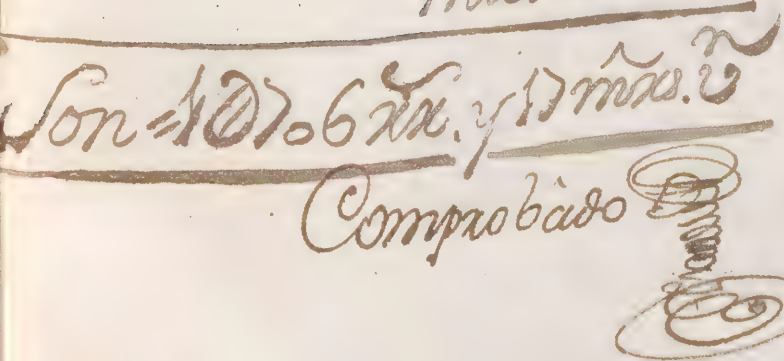 Son = 1∂706 rr̃. y 17 mrs̃. ṽ
Comprobado